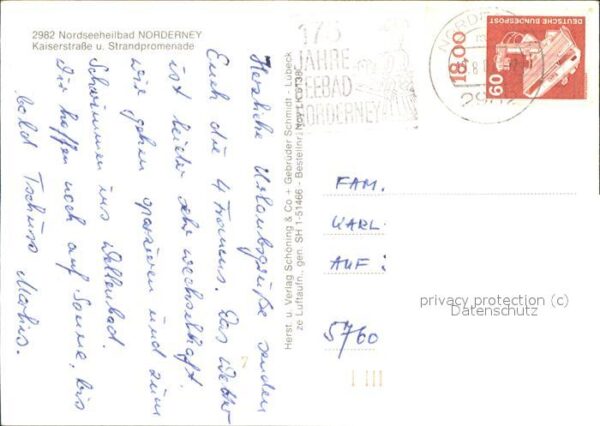 2982 Nordseeheilbad NORDERNEY
Kaiserstraße u. Strandpromenade
Herzliche Urlaubsgrüße senden
Euch die 4 Das Wetter
ist leider sehr wechselhaft.
Wir gehen spazieren und zum
Schwimmen ins Wellenbad.
Wir hoffen noch auf Sonne, bis
bald Tschüss
Herst. u. Verlag Schöning & Co + Gebrüder Schmidt - Lübeck
ze Luftaufn., gen. SH 1-51466 - Bestellnr. Nov
175
JAHRE
SEEBAD
NORDERNEY
DEUTSCHE BUNDESPOST
60
18.00
FAM.
KARL
AUF:
5760
privacy protection (c)
Datenschutz